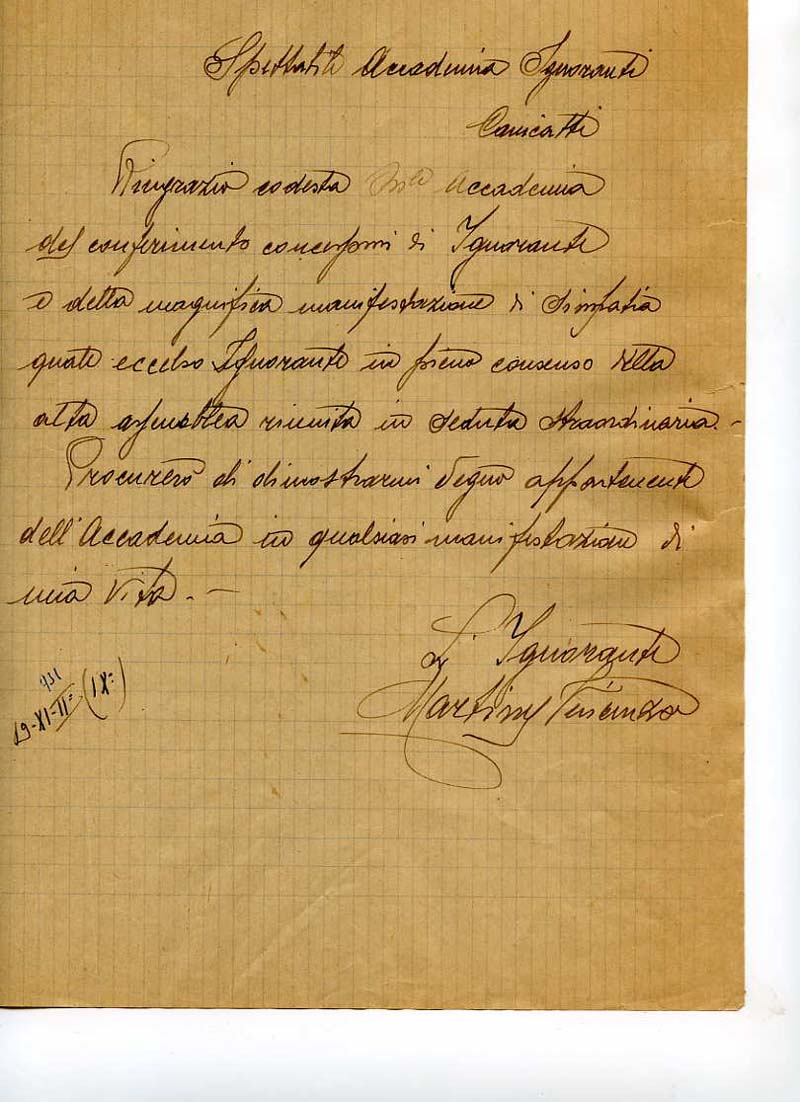 Spettabile Accademia Ignoranti
Canicattì
Ringrazio codesta Accademia
del conferimento concessomi di Ignorante
e della magnifica manifestazione di simpatia
quale eccelso Ignorante in pieno consenso della
alta assemblea riunita in seduta straordinaria.-
Procurerò di dimostrarmi degno appartenente
dell'Accademia in qualsiasi manifestazione di
mia vita.-
L'Ignorante
Martines
931
19-XI-II= (IX=)